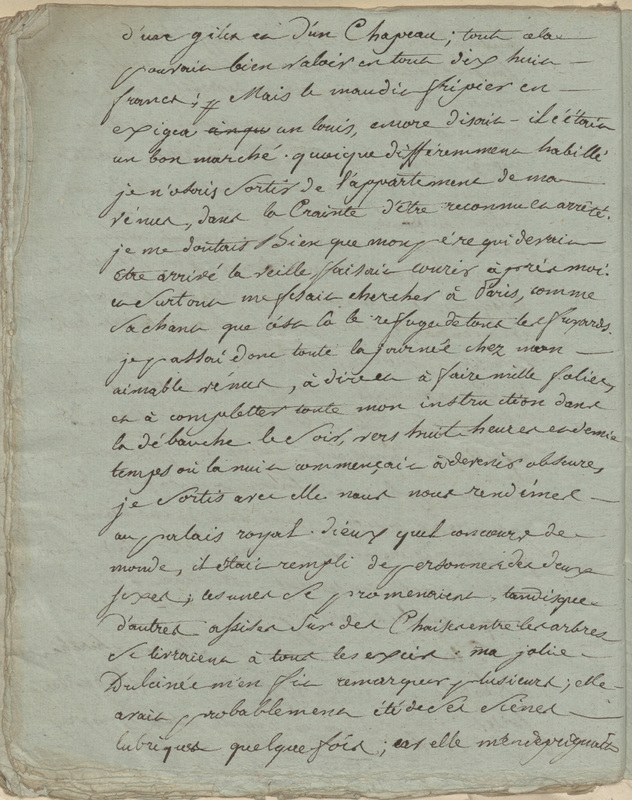 d'un gilet et d'un Chapeau; tout cela
pouvait bien valoir en tout dix huit
francs; Mais le maudit fripier en
exigea cinqu un louis, encore disait-il c'était
un bon marché. quoique différemment habillé
je n'osois sortir de l'appartement de ma
vénus, dans la Crainte d'être reconnu et arrêté.
je me doutais Bien que mon père qui devait
etre arrivé la veille faisait courir après moi.
et surtout me fesait chercher à Paris, comme
sachant que c'est là le refuge de tous les fuyards.
je passai donc toute la journée chez mon
aimable vénus, à dire et à faire mille folies,
et à completter toute mon instruction dans
la débauche. le soir, vers huit heures et demie
temps où la nuit commençait à devenir obscure,
je sortis avec elle nous nous rendimes
au palais royal. dieux quel concours de
monde, il était rempli de personnes des deux
sexes; les unes se promenaient, tandisque
d'autres assises sur des Chaises entre les arbres
se livraient à tous les excès. ma jolie
Dulcinée m'en fit remarquer plusieurs; elle
avait probablement été de ses scènes
lubriques quelque fois; car elle